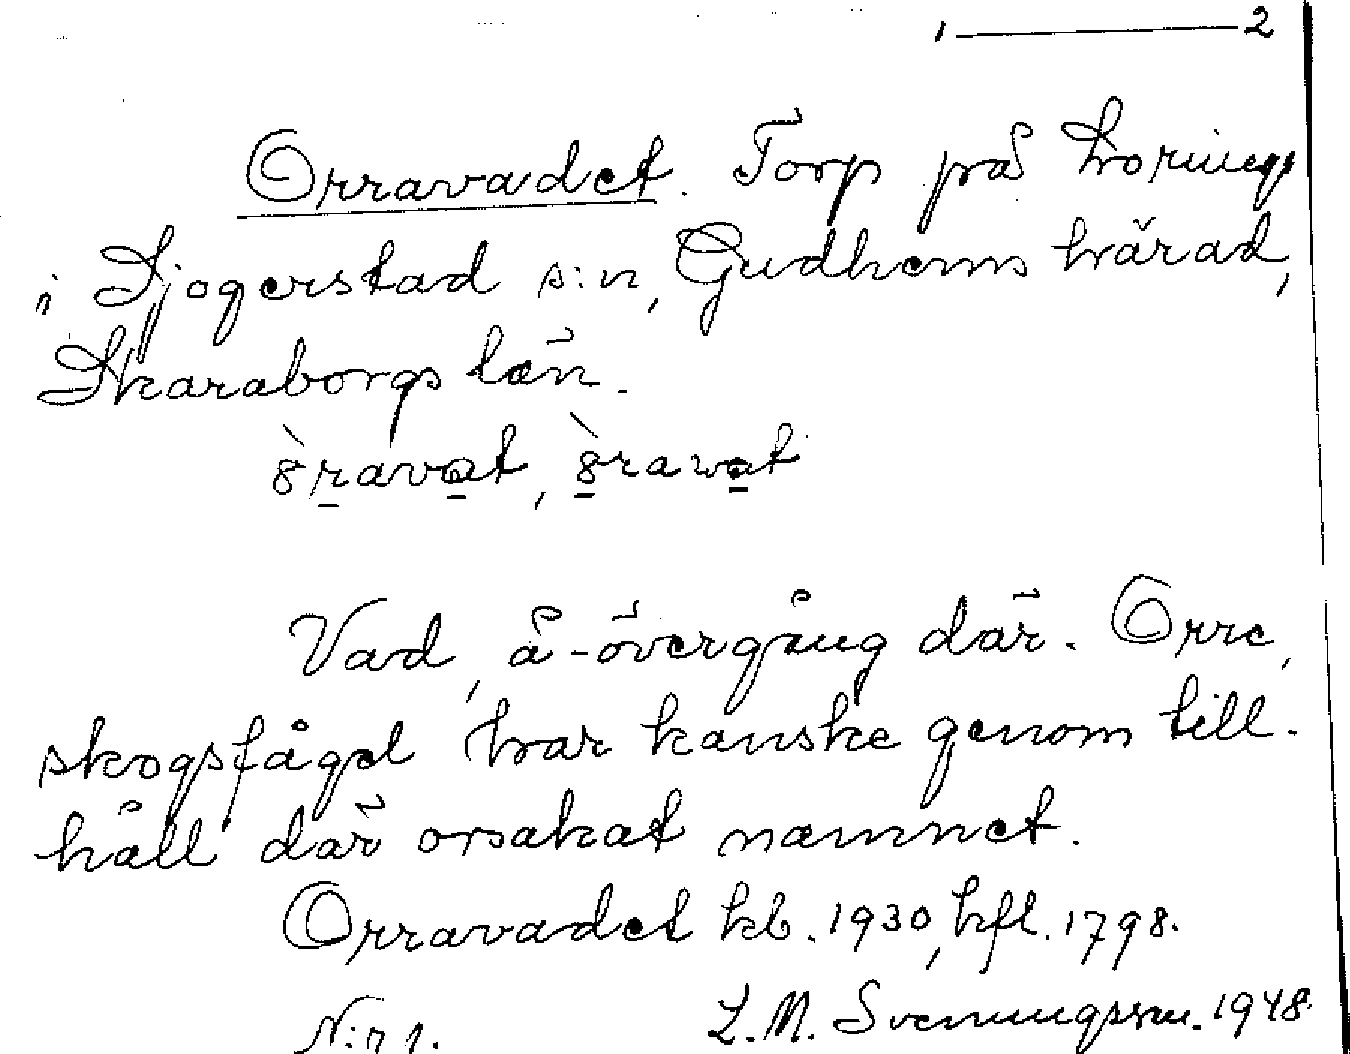 1 — 2
Orravadet. Torp på Horungs
i Sjogerstad s:n, Gudhems härad,
Skaraborgs län.
Vad, å-övergång där. Orre,
skogsfågel har kanske genom till-
håll där orsakat namnet.
Orravadet kb. 1930, hfl. 1798.
N:r 1. L. M. Svenungsson. 1948